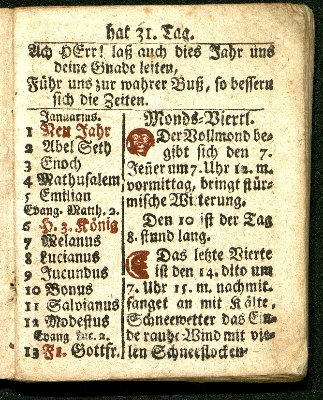 hat 31. Tag.
Ach HErr! laß auch dies Jahr uns
deine Gnade leiten,
Führ uns zur wahrer Buß, so bessern
sich die Zeiten.
Januarius.
1 Neu Jahr
2 Abel Seth
3 Enoch
4 Mathusalem
5 Emilian
Evang. Matth. 2.
6 H. 3. König
7 Melanus
8 Lucianus
9 Jucundus
10 Bonus
11 Salvianus
12 Modestus
Evang. Luc. 2.
13 F1. Gottfr.
Monds-Viertl.
Der Vollmond be-
gibt sich den 7.
Jeñer um 7. Uhr 12. m.
vormittag, bringt stür-
mische Witterung.
Den 10 ist der Tag
8. stund lang.
Das letzte Vierte
ist den 14. dito um
7. Uhr 15. m. nachmit.
fanget an mit Kälte,
Schneewetter das En-
de rauhe Wind mit vie-
len Schneeflocken-